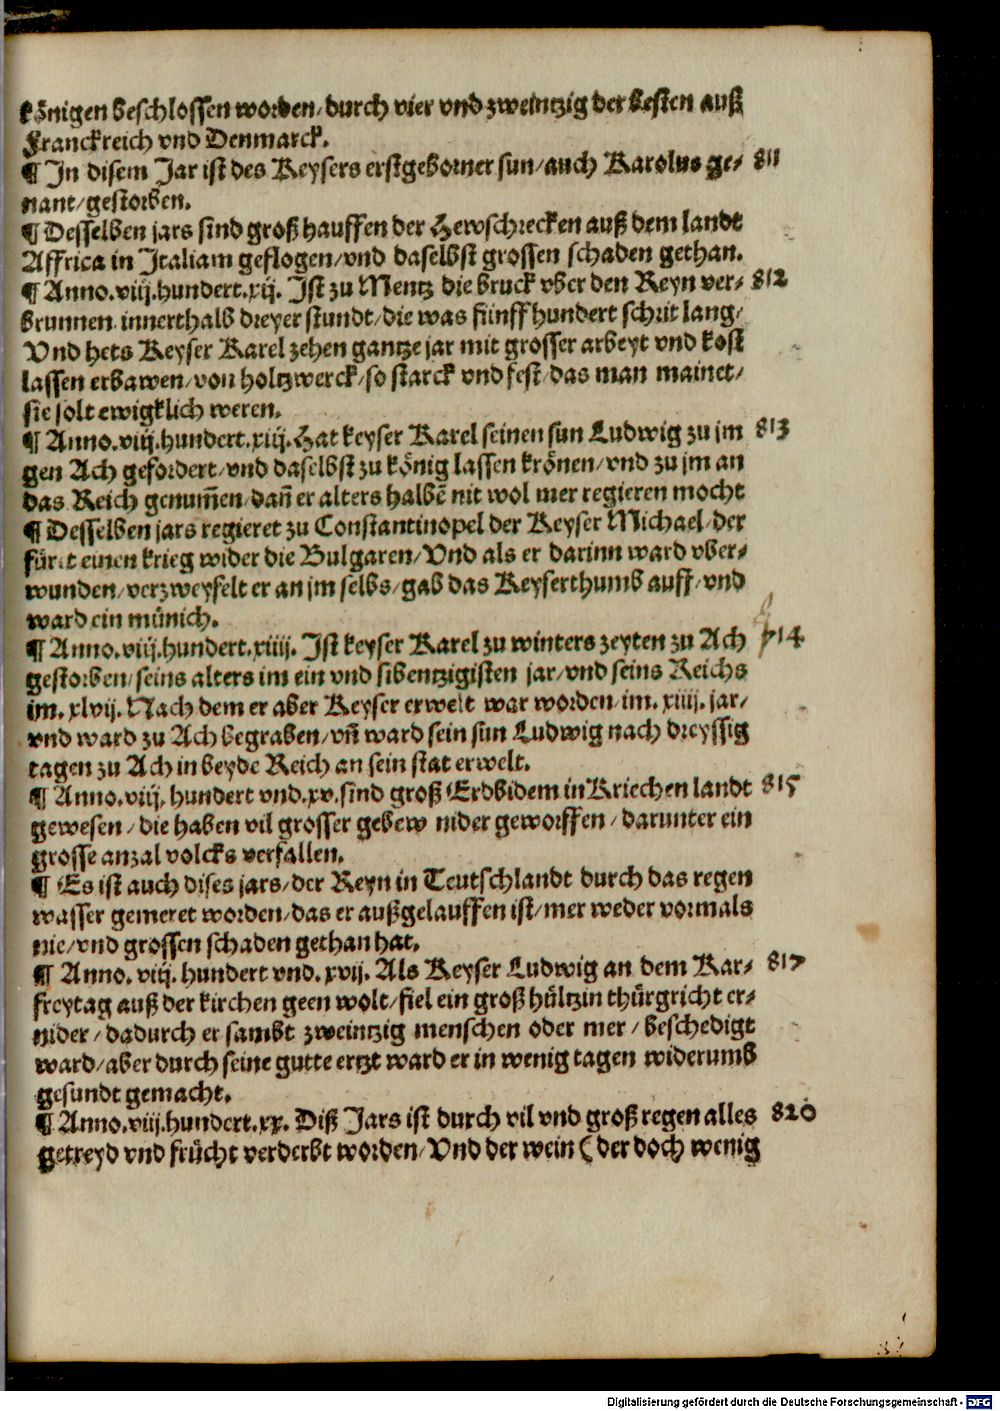 könig̃en beschlossen worden/durch vier vnd zweintzig der besten auß
Franckreich vnd Denmarck.
¶ In disem Jar ist des Keysers erstgeborner sun/auch Karolus ge- 811
nant/gestorben.
¶ Desselben jars sind groß hauffen der Hewschrecken auß dem landt
Affrica in Italiam geflogen/vnd daselbst grossen schaden gethan.
¶ Anno.viij.hundert.xij. Ist zu Mentz die bruck vber den Reyn ver- 812
brunnen innerthalb dreyer stundt/die was fünffhundert schrit lang/
Vnd hets Keyser Karel zehen gantze jar mit grosser arbeyt vnd kost
lassen erbawen/von holtzwerck/so starck vnd fest/das man mainet/
sie solt ewigklich weren.
¶ Anno.viij.hundert.xiij.Hat keyser Karel seinen sun Ludwig zu jm 813
gen Ach gefordert/vnd daselbst zu könig lassen krönen/vnd zu jm an
das Reich genum̃en/dañ er alters halbẽ nit wol mer regieren mocht
¶ Desselben jars regieret zu Constantinopel der Keyser Michael/der
füret einen krieg wider die Bulgaren/Vnd als er darinn ward vber-
wunden/verzweyfelt er an jm selbs/gab das Keyserthumb auff/vnd
ward ein münich.
¶ Anno.viij.hundert.xiiij. Ist keyser Karel zu winters zeyten zu Ach 814
gestorben/seins alters im ein vnd sibentzigisten jar/vnd seins Reichs
im.xlvij.Nach dem er aber Keyser erwelt war worden/im.xiiij.jar/
vnd ward zu Ach begraben/vñ ward sein sun Ludwig nach dreyssig
tagen zu Ach in beyde Reich an sein stat erwelt.
¶ Anno.viij.hundert vnd.xv.sind groß Erdbidem in Kriechen landt 815
gewesen/die haben vil grosser gebew nider geworffen/darunter ein
grosse anzal volcks verfallen.
¶ Es ist auch dises jars/der Reyn in Teutschlandt durch das regen
wasser gemeret worden/das er außgelauffen ist/mer weder vormals
nie/vnd grossen schaden gethan hat.
¶ Anno.viij.hundert vnd.xvij. Als Keyser Ludwig an dem Kar- 817
freytag auß der kirchen geen wolt/fiel ein groß hültzin thürgricht er-
nider/dadurch er sambt zweintzig menschen oder mer/beschedigt
ward/aber durch seine gutte ertzt ward er in wenig tagen widerumb
gesundt gemacht.
¶ Anno.viij.hundert.xx. Diß Jars ist durch vil vnd groß regen alles 820
getreyd vnd frücht verderbt worden/Vnd der wein (der doch wenig
Digitalisierung gefördert durch die Deutsche Forschungsgemeinschaft - DFG